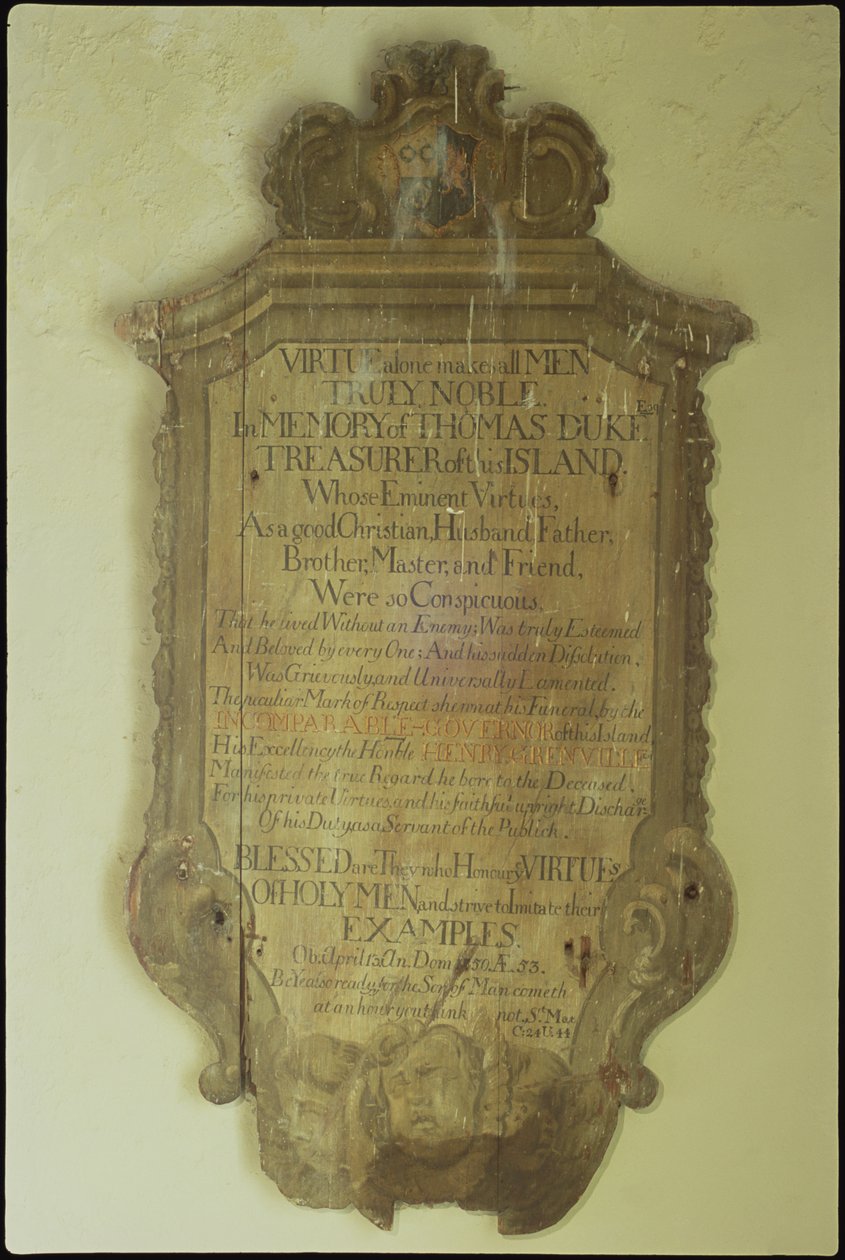 VIRTUE alone makes all MEN
TRULY NOBLE.
In MEMORY of THOMAS DUKE Esq
TREASURER of this ISLAND.
Whose Eminent Virtues,
As a good Christian, Husband, Father,
Brother, Master, and Friend,
Were so Conspicuous,
That he lived Without an Enemy; Was truly Esteemed
And Beloved by every One; And his sudden Dissolution,
Was Grievously, and Universally Lamented.
The peculiar Mark of Respect shewn at his Funeral, by the
INCOMPARABLE GOVERNOR of this Island
His Excellency the Honble HENRY GRENVILLE
Manifested the true Regard he bore to the Deceased,
For his private Virtues, and his faithful upright Dischar-ge
Of his Duty as a Servant of the Publick.
BLESSED are They who Honour ye VIRTUEs
Of HOLY MEN, and strive to Imitate their
EXAMPLES.
Ob. April 13. An. Dom 1750. Æ. 53.
Be Ye also ready, for the Son of Man cometh
at an hour you think not, St. Mat
C: 24 U. 44